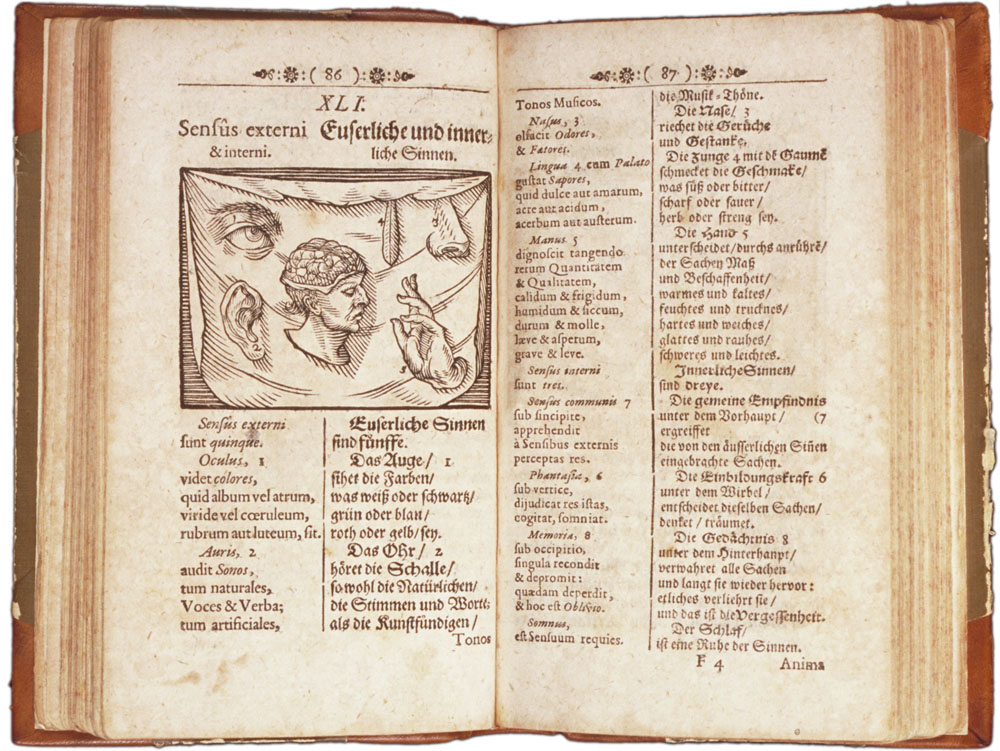 ( 86 )
XLI.
Sensûs externi
& interni.
Euserliche und inner-
liche Sinnen.
4
3
2
5
Sensûs externi
sunt quinque.
Oculus, 1
videt colores,
quid album vel atrum,
viride vel cœruleum,
rubrum aut luteum, sit.
Auris, 2
audit Sonos,
tum naturales,
Voces & Verba;
tum artificiales,
Euserliche Sinnen
sind fünffe.
Das Auge/ 1
sihet die Farben/
was weiß oder schwartz/
grün oder blau/
roth oder gelb/ sey.
Das Ohr/ 2
höret die Schalle/
so wohl die Natürlichen/
die Stimmen und Wort;
als die Kunstfündigen/
Tonos
( 87 )
Tonos Musicos.
Nasus, 3
olfacit Odores,
& Fætores.
Lingua 4 cum Palato
gustat Sapores,
quid dulce aut amarum,
acre aut acidum,
acerbum aut austerum.
Manus 5
dignoscit tangendo
rerum Quantitatem
& Qualitatem,
calidum & frigidum,
humidum & siccum,
durum & molle,
læve & asperum,
grave & leve.
Sensûs interni
sunt tres.
Sensûs communis 7
sub sincipite,
apprehendit
à Sensibus externis
perceptas res.
Phantasia, 6
sub vertice,
dijudicat res istas,
cogitat, somniat.
Memoria, 8
sub occipitio,
singula recondit
& depromit:
quædam deperdit,
& hoc est Oblivio.
Somnus,
est Sensuum requies.
die Musik-Thöne.
Die Nase/ 3
riechet die Gerüche
und Gestanke.
Die Zunge 4 mit dē Gaumē
schmecket die Geschmäke/
was süß oder bitter/
scharf oder sauer/
herb oder streng sey.
Die Hand 5
unterscheidet/durchs anrührē/
der Sachen Maß
und Beschaffenheit/
warmes und kaltes/
feuchtes und trucknes/
hartes und weiches/
glattes und rauhes/
schweres und leichtes.
Innerliche Sinnen/
sind dreye.
Die gemeine Empfindnis
unter dem Vorhaupt/ (7
ergreiffet
die von den äusserlichen Siñen
eingebrachte Sachen.
Die Einbildungskraft 6
unter dem Wirbel/
entscheidet dieselben Sachen/
denket / träumet.
Die Gedächtnis 8
unter dem Hinterhaupt/
verwahret alle Sachen
und langt sie wieder hervor:
etliches verliehrt sie/
und das ist die Vergessenheit.
Der Schlaf/
ist eine Ruhe der Sinnen.
F 4
Anima